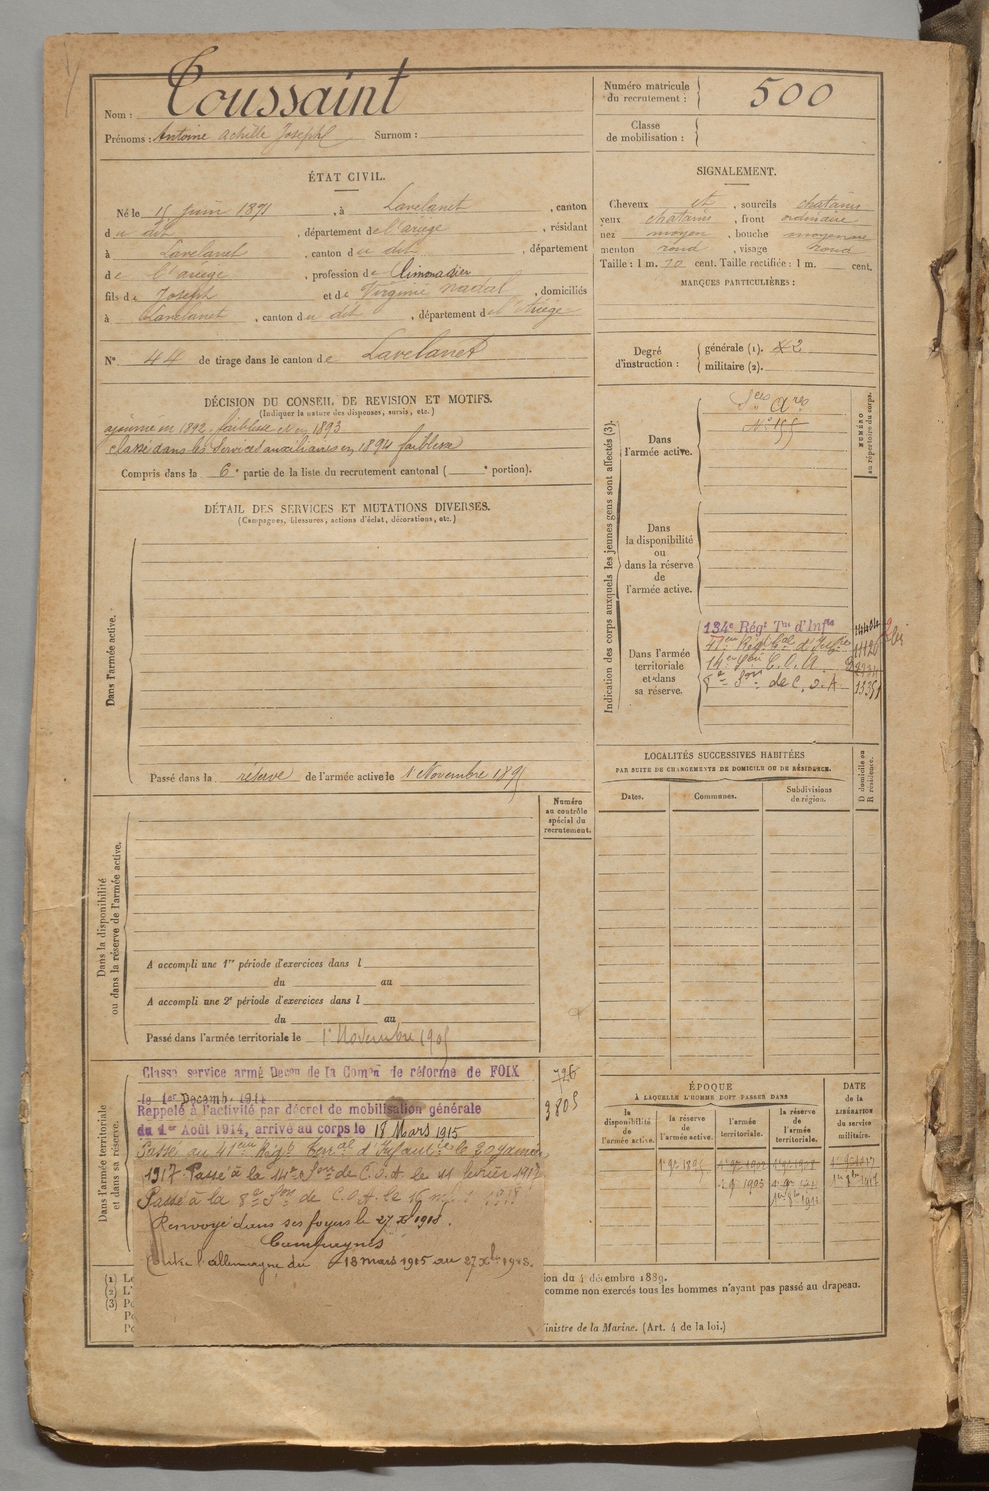 Nom : Toussaint
Prénoms : Antoine Achille Joseph Surnom :
Numéro matricule du recrutement : 500
Classe de mobilisation :
ÉTAT CIVIL.
Né le 15 juin 1871, à Lavelanet, canton
du dit, département de l'ariège, résidant
à Lavelanet, canton du dit, département
de l'ariège, profession de limonadier
fils de Joseph et de Virginie nadal, domiciliés
à Lavelanet, canton du dit, département de l'Ariège
N° 44 de tirage dans le canton de Lavelanet
SIGNALEMENT.
Cheveux et, sourcils chatains
yeux chatains, front ordinaire
nez moyen, bouche moyenne
menton rond, visage rond
Taille : 1 m. 70 cent. Taille rectifiée : 1 m. cent.
MARQUES PARTICULIÈRES :
Degré d'instruction : générale (1). 2
militaire (2).
DÉCISION DU CONSEIL DE REVISION ET MOTIFS.
(Indiquer la nature des dispenses, sursis, etc.)
ajourné en 1892, faiblesse 1893
classé dans les services auxiliaires en 1894 faiblesse
Compris dans la 6e partie de la liste du recrutement cantonal ( e portion).
DÉTAIL DES SERVICES ET MUTATIONS DIVERSES.
(Campagnes, blessures, actions d'éclat, décorations, etc.)
Dans l'armée active.
Passé dans la réserve de l'armée active le 1 Novembre 1895
Indication des corps auxquels les jeunes gens sont affectés (3).
NUMÉRO au répertoire du corps.
Dans l'armée active.
Dans la disponibilité ou dans la réserve de l'armée active.
Dans l'armée territoriale et dans sa réserve.
134e Régt Tal d'Infie
14e Son C. O. A.
8e Son de C. O. A.
LOCALITÉS SUCCESSIVES HABITÉES
PAR SUITE DE CHANGEMENTS DE DOMICILE OU DE RÉSIDENCE.
Dates. Communes. Subdivisions de région. D domicile ou R résidence.
Numéro au contrôle spécial du recrutement.
Dans la disponibilité ou dans la réserve de l'armée active.
A accompli une 1re période d'exercices dans l
du au
A accompli une 2e période d'exercices dans l
du au
Passé dans l'armée territoriale le 1er Novembre 1905
Dans l'armée territoriale et dans sa réserve.
Classé service armé Décon de la Comon de réforme de FOIX
le 1er Décemb. 1914
Rappelé à l'activité par décret de mobilisation générale
du 1er Août 1914, arrivé au corps le 18 Mars 1915
Passé au 41eme Régt terral d'Infanterie le 30 janvier
1917 Passé à la 14e Son de C.O.A. le 11 février 1917
Passé à la 8e Son de C.O.A. le 16
Renvoyé dans ses foyers le 27 Xbre 1918.
Campagnes
Contre l'allemagne du 18 mars 1915 au 27 Xbre 1918.
726
3805
ÉPOQUE
À LAQUELLE L'HOMME DOIT PASSER DANS
la disponibilité de l'armée active. la réserve de l'armée active. l'armée territoriale. la réserve de l'armée territoriale.
DATE de la LIBÉRATION du service militaire.
(1)
(2)
(3)
ion du 4 décembre 1889.
comme non exercés tous les hommes n'ayant pas passé au drapeau.
inistre de la Marine. (Art. 4 de la loi.)